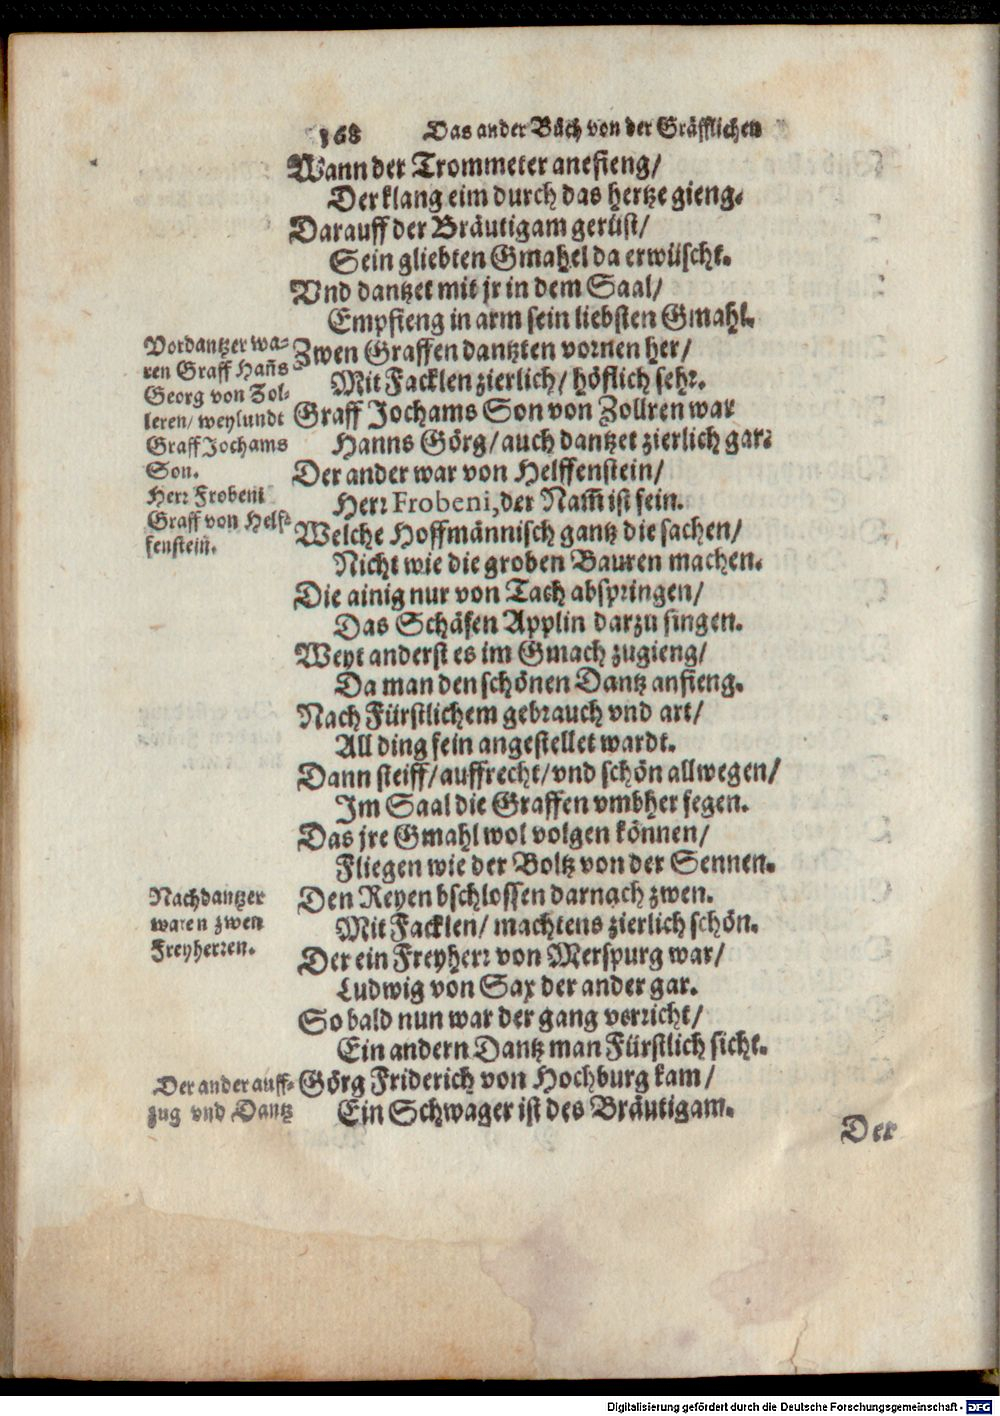 168 Das ander Buͤch von der Graͤfflichen
Wann der Trommeter anefieng/
Der klang eim durch das hertze gieng.
Darauff der Braͤutigam geruͤst/
Sein gliebten Gmahel da erwuͤscht.
Vnd dantzet mit jr in dem Saal/
Empfieng in arm sein liebsten Gmahl.
Vordantzer wa-
ren Graff Hañs
Georg von Zol-
leren/ weylundt
Graff Jochams
Son.
Herr Frobeni
Graff von Helf-
fenstein.
Zwen Graffen dantzten vornen her/
Mit Facklen zierlich/ hoͤflich sehr.
Graff Jochams Son von Zollren war
Hanns Goͤrg/ auch dantzet zierlich gar:
Der ander war von Helffenstein/
Herr Frobeni, der Nam̃ ist sein.
Welche Hoffmaͤnnisch gantz die sachen/
Nicht wie die groben Bauren machen.
Die ainig nur von Tach abspringen/
Das Schaͤfen Applin darzu singen.
Weyt anderst es im Gmach zugieng/
Da man den schoͤnen Dantz anfieng.
Nach Fuͤrstlichem gebrauch vnd art/
All ding fein angestellet wardt.
Dann steiff/ auffrecht/ vnd schoͤn allwegen/
Im Saal die Graffen vmbher fegen.
Das jre Gmahl wol volgen koͤnnen/
Fliegen wie der Boltz von der Sennen.
Nachdantzer
waren zwen
Freyherren.
Den Reyen bschlossen darnach zwen.
Mit Facklen/ machtens zierlich schoͤn.
Der ein Freyherr von Merspurg war/
Ludwig von Sax der ander gar.
So bald nun war der gang verricht/
Ein andern Dantz man Fuͤrstlich sicht.
Der ander auff-
zug vnd Dantz
Goͤrg Friderich von Hochburg kam/
Ein Schwager ist des Braͤutigam.
Der
Digitalisierung gefördert durch die Deutsche Forschungsgemeinschaft - DFG